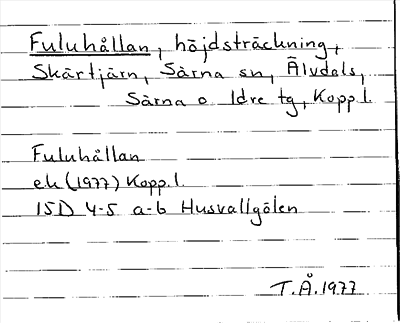 Fuluhållan, höjdsträckning,
Skärtjärn, Särna sn, Älvdals,
Särna o Idre tg, Kopp.l.
Fuluhållan
ek (1977) Kopp.l.
15D 4-5 a-b Husvallgölen
T.Å.1977